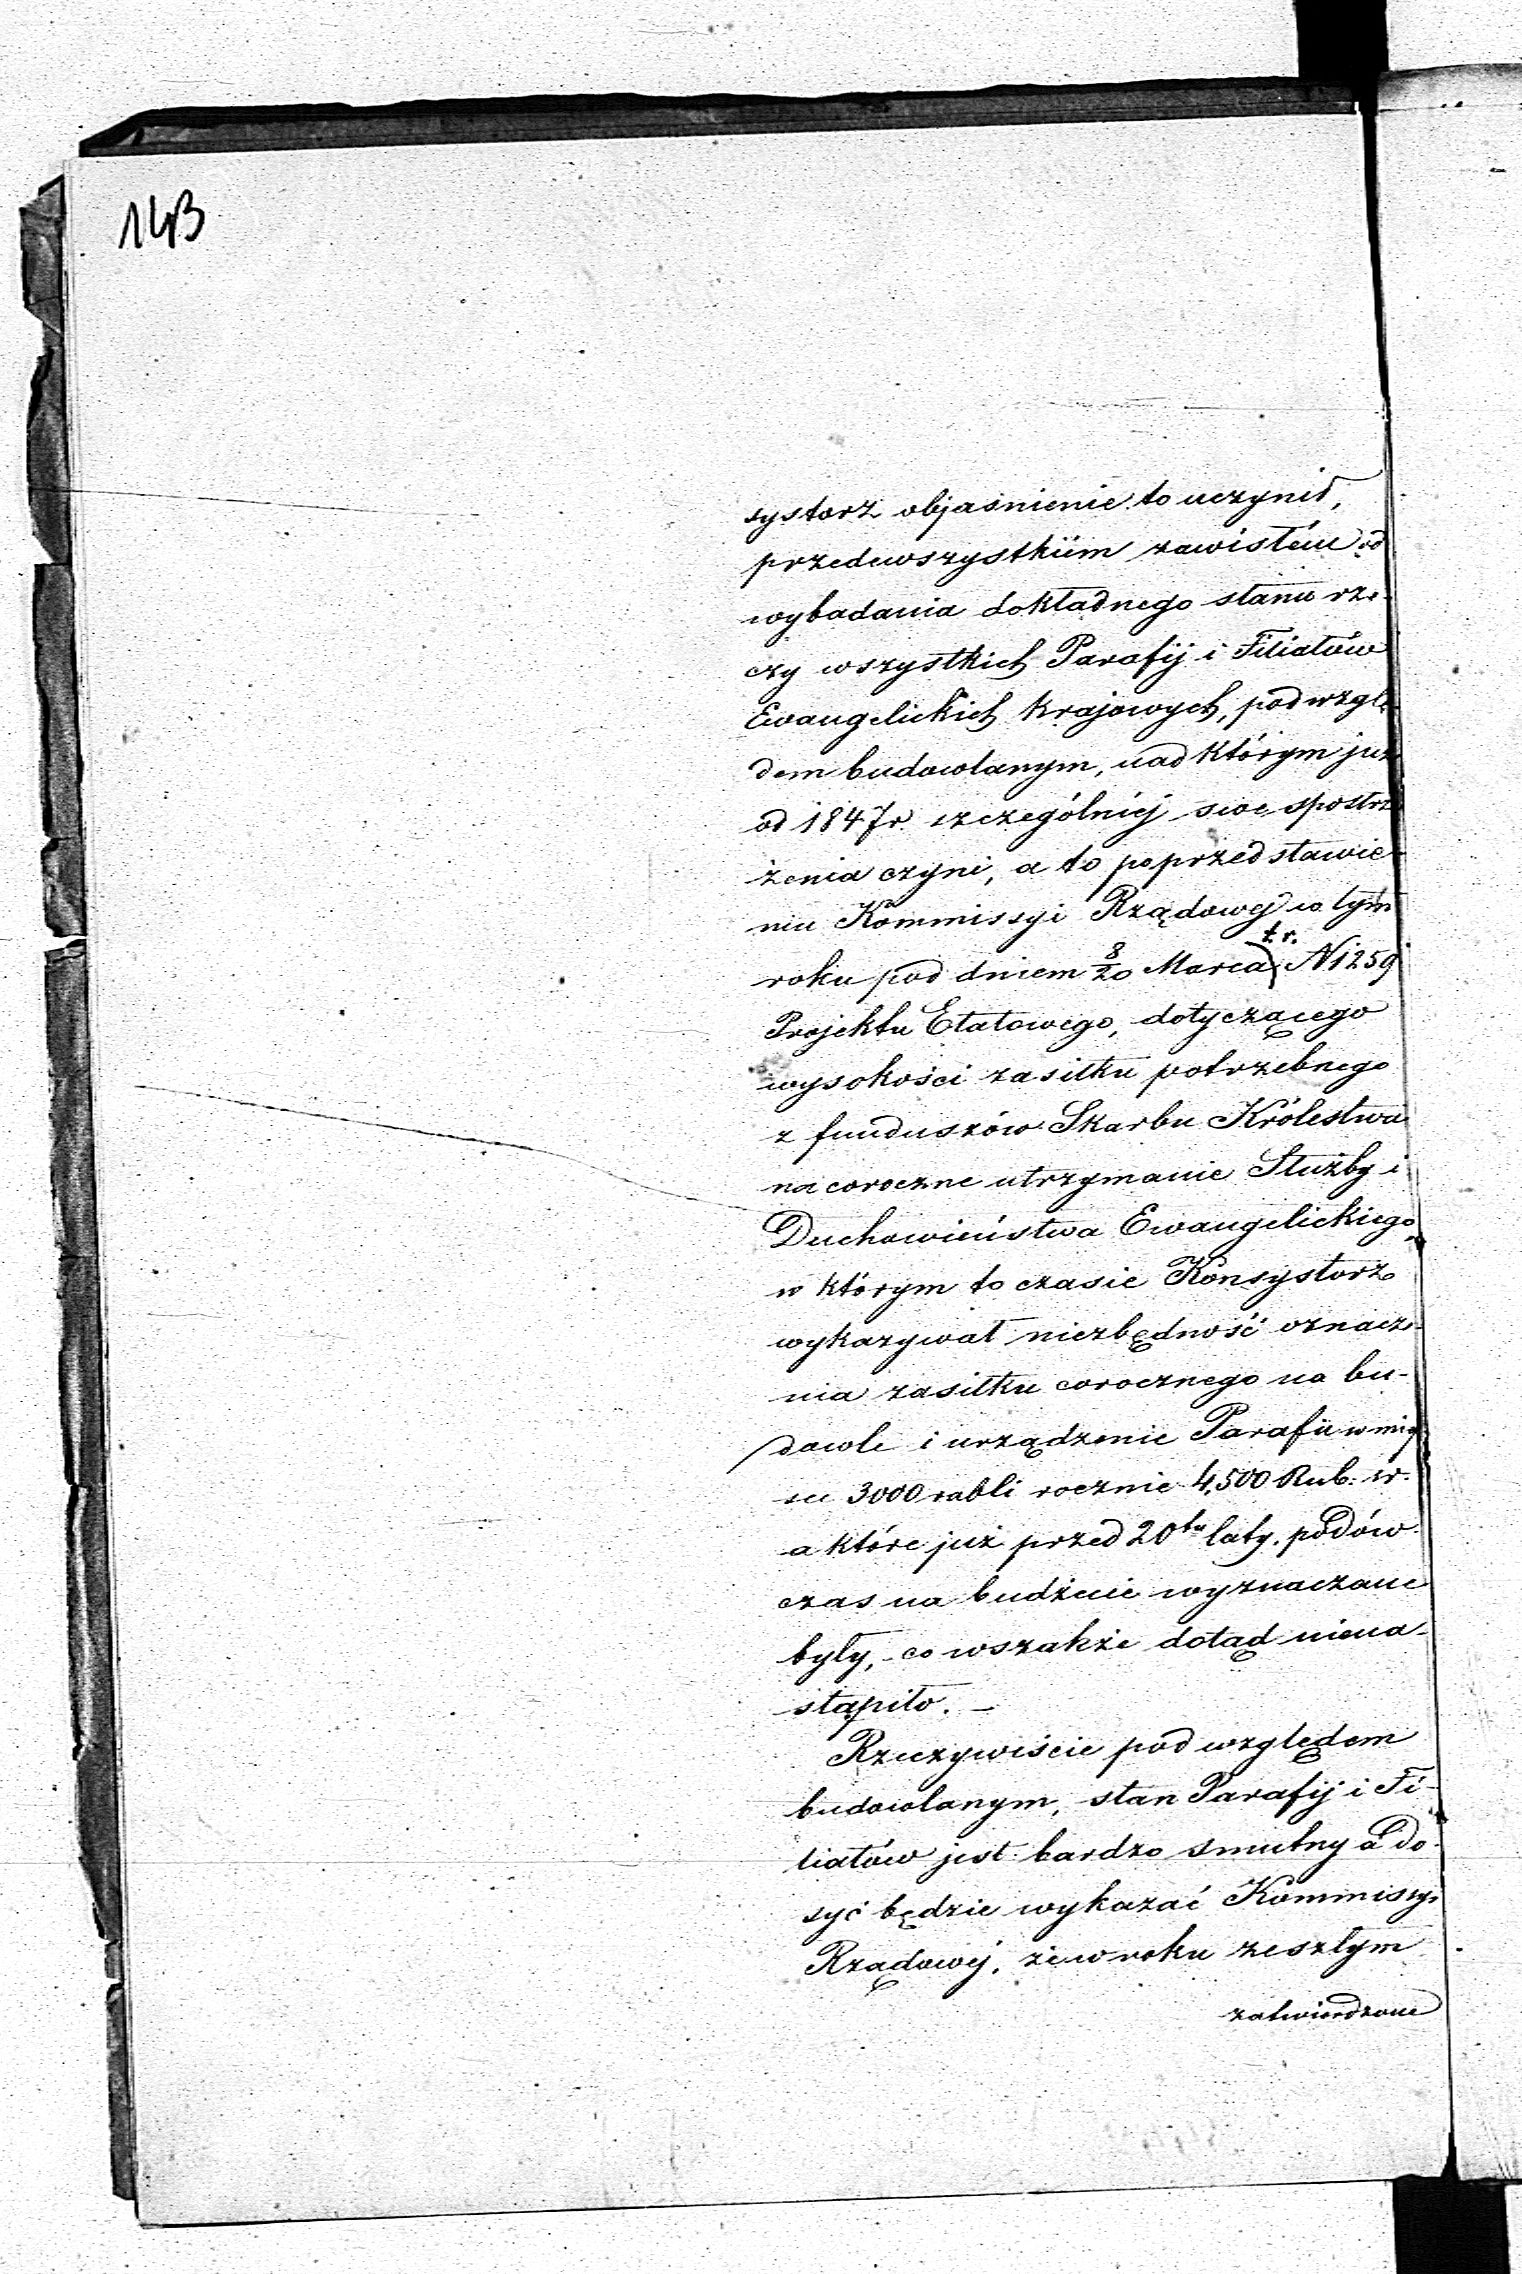 143
systorz objaśnienie to uczynił,
przedewszystkiém zawisłém od
wybadania dokładnego stanu rze-
czy wszystkich Parafij i Filiałów
Ewangelickich krajowych, pod wzglę-
dem budowlanym, nad którym już
od 1847 r. szczególniéj swe spostrze
żenia czyni, a to po przedstawie-
niu Kommissyi Rządowej w tym
roku pod dniem 8/20 Marca t.r. N 1259
Projektu Etatowego, dotyczącego
wysokości zasiłku potrzebnego
z funduszów Skarbu Królestwa
na coroczne utrzymanie Służby i
Duchowieństwa Ewangelickiego,
w którym to czasie Konsystorz
wykazywał niezbędność oznacze-
nia zasiłku corocznego na bu-
dowle i urządzenie Parafii w miej
scu 3000 rubli rocznie 4,500 Rub. sr.
a które już przed 20tu laty, podów
czas na budżecie wyznaczane
były, co wszakże dotąd niena-
stąpiło. —
Rzeczywiście pod względem
budowlanym, stan Parafij i Fi-
liałów jest bardzo smutny a do-
syć będzie wykazać Kommissyi
Rządowej, że w roku zeszłym
zatwierdzone